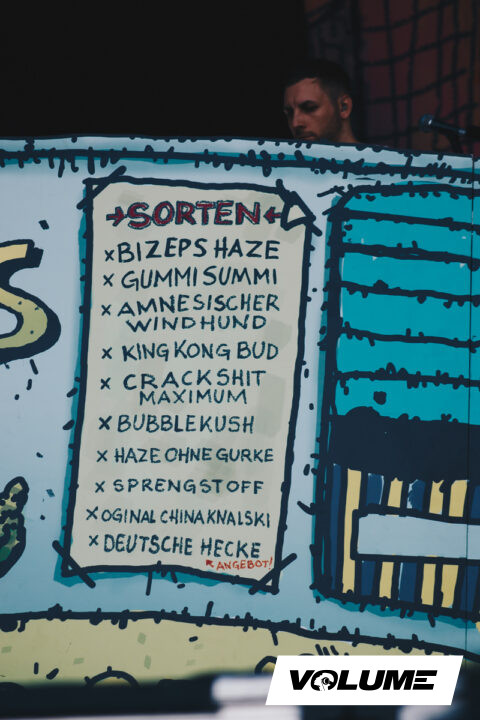 →SORTEN←
xBIZEPS HAZE
x GUMMISUMMI
x AMNESISCHER
WINDHUND
x KING KONG BUD
x CRACKSHIT
MAXIMUM
x BUBBLEKUSH
x HAZE OHNE GURKE
x SPRENGSTOFF
x OGINAL CHINAKNALSKI
x DEUTSCHE HECKE
ANGEBOT!
VOLUME